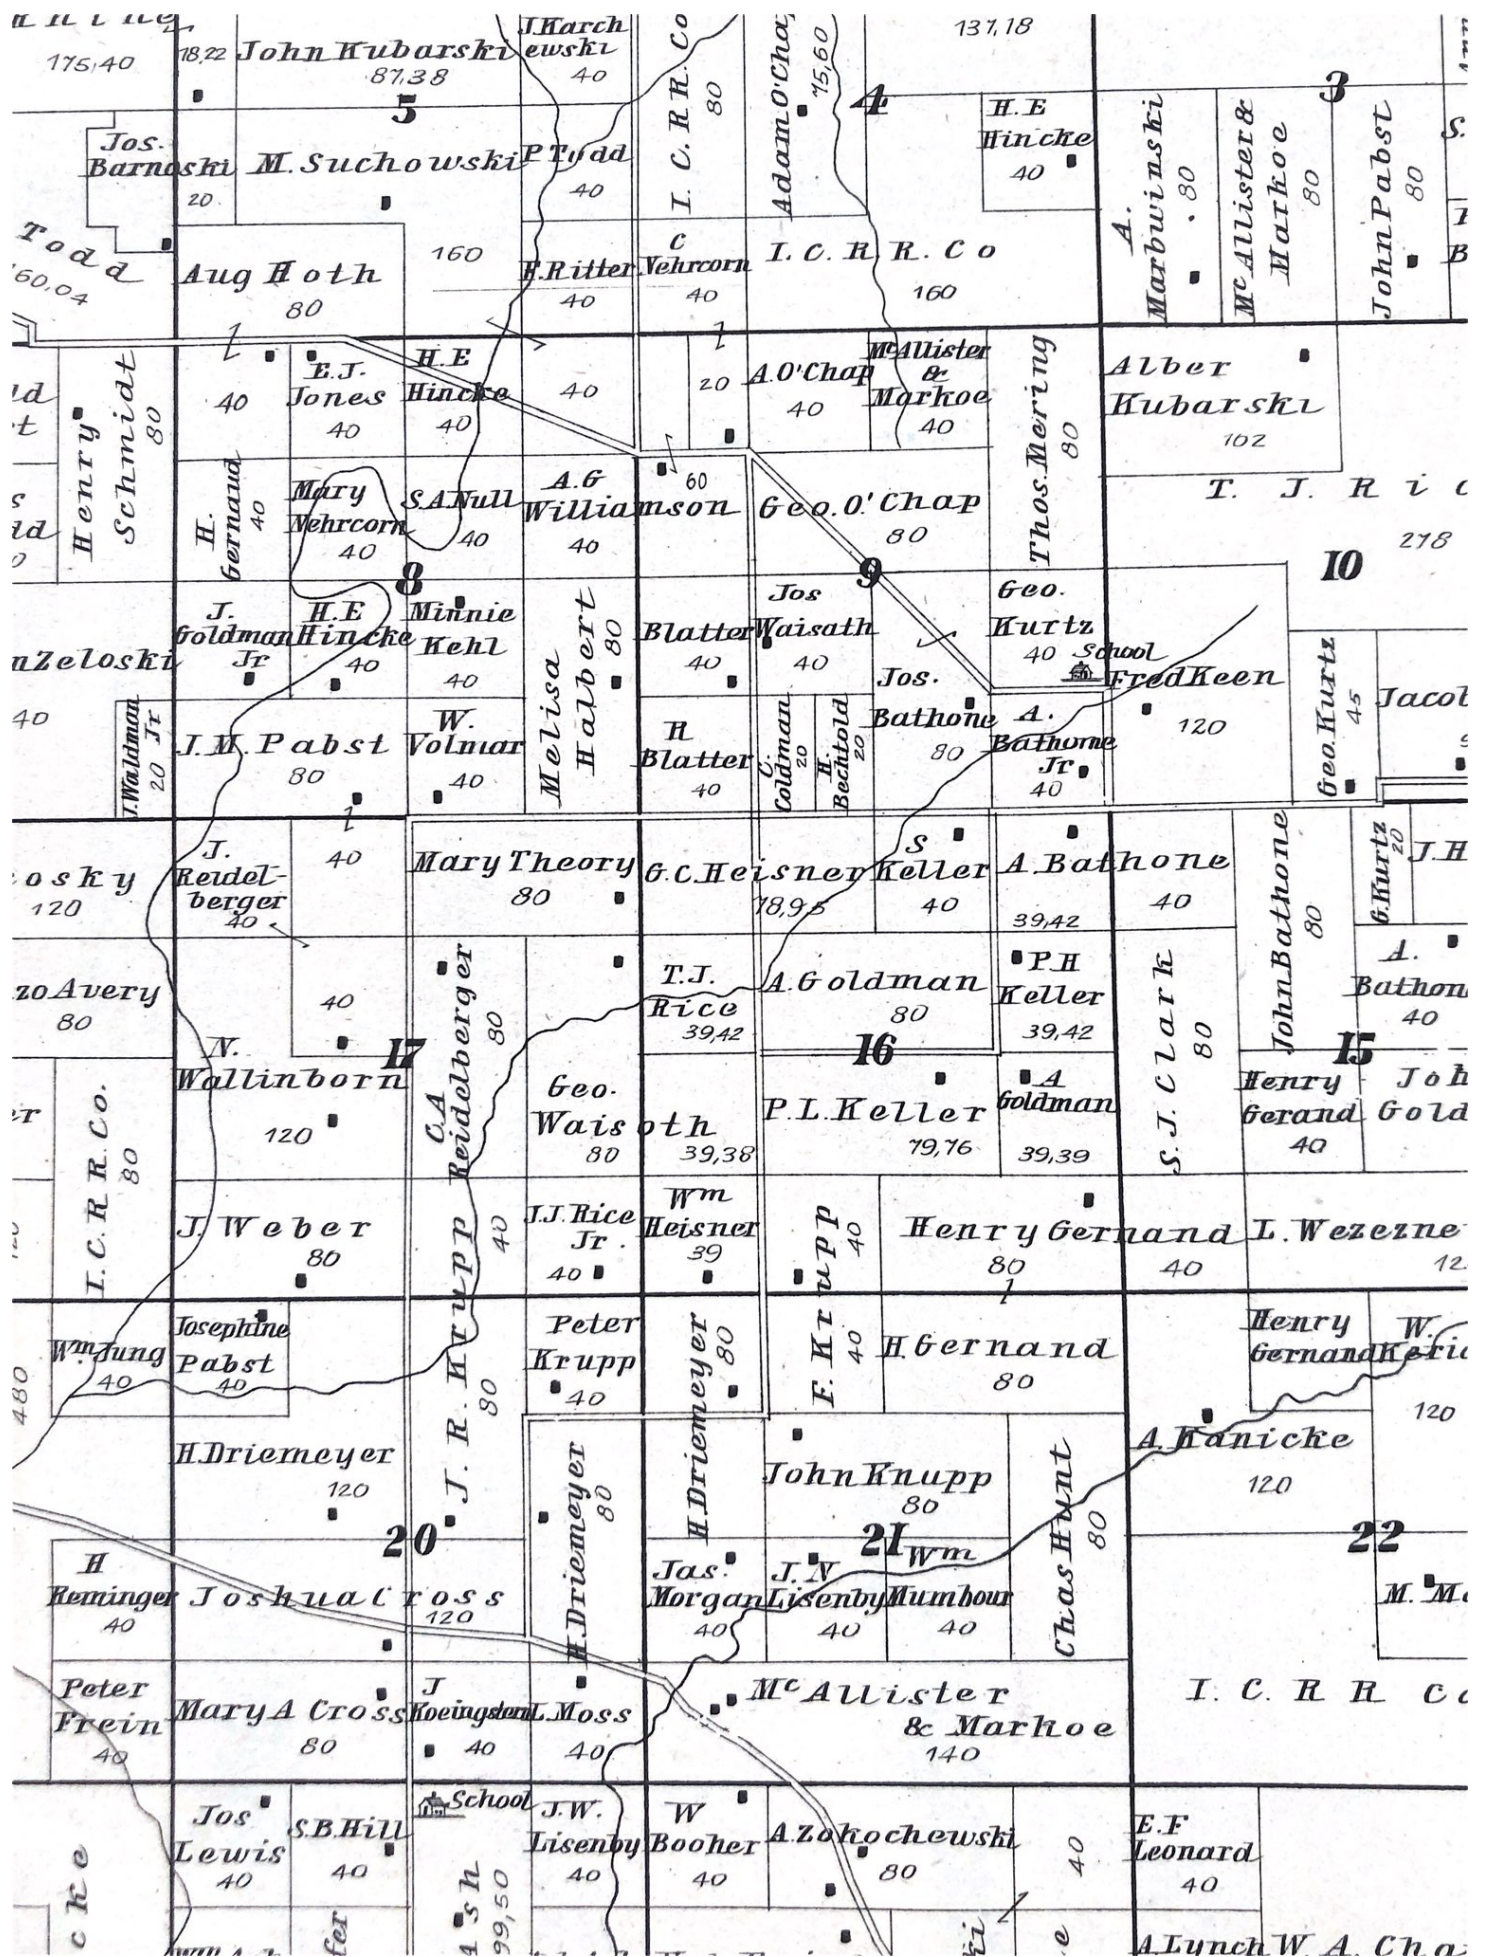 175,40
18,22
John Kubarski
87,38
J. Karch
ewski
40
I. C. R R. Co
80
Adam O'Chap
75,60
137,18
5
4
3
Jos.
Barnoski
20
M. Suchowski
P. Todd
40
H. E
Hincke
40
A.
Marbwinski
80
Mc Allister &
Markoe
80
John Pabst
80
S.
B
Todd
160,04
Aug Hoth
80
160
F. Ritter
40
C
Nehrcorn
40
I. C. R R. Co
160
Henry
Schmidt
80
40
E. J.
Jones
40
H. E
Hincke
40
40
20
A. O'Chap
40
Mc Allister
&
Markoe
40
Thos. Mering
80
Alber
Kubarski
102
H.
Gernand
40
Mary
Nehrcorn
40
S. A. Null
40
A. G
Williamson
40
60
Geo. O'Chap
80
T. J. Ric
218
8
9
10
n Zeloski
40
J.
Goldman
Jr
H. E
Hincke
40
Minnie
Kehl
40
Melisa
Halbert
80
Blatter
40
Jos
Waisath
40
Geo.
Kurtz
40
School
Fred Keen
120
Geo. Kurtz
45
Jacob
I. Waldman
Jr
20
J. M. Pabst
80
W.
Volmar
40
H
Blatter
40
C.
Coldman
20
H.
Bechtold
20
Jos.
Bathone
80
A.
Bathome
Jr
40
osky
120
J.
Reidel-
berger
40
40
Mary Theory
80
G. C. Heisner
78,95
S
Keller
40
A. Bathone
39,42
40
John Bathone
80
G. Kurtz
20
J. H
zo Avery
80
40
C. A
Reidelberger
80
T. J.
Rice
39,42
A. Goldman
80
P. H
Keller
39,42
S. J. Clark
80
A.
Bathon
40
17
16
15
I. C. R R. Co.
80
N.
Wallinborn
120
Geo.
Waisoth
80
39,38
P. L. Keller
79,76
A
Goldman
39,39
Henry
Gerand
40
Joh
Gold
J. Weber
80
40
J. J. Rice
Jr
40
Wm
Heisner
39
F. Krupp
40
40
Henry Gernand
80
40
L. Wezezne
12
480
Wm Jung
40
Josephine
Pabst
40
J. R. Krupp
80
Peter
Krupp
40
H. Driemeyer
80
H. Gernand
80
Henry
Gernand
W.
Keric
120
H. Driemeyer
120
H. Driemeyer
80
John Knupp
80
Chas Hunt
80
A. Kanicke
120
20
21
22
H
Reminger
40
Joshua Cross
120
Jas.
Morgan
40
J. N
Lisenby
40
Wm
Mumbour
40
M. Mc
Peter
Frein
40
Mary A Cross
80
J
Koeingsten
40
L. Moss
40
Mc Allister
& Markoe
140
I. C. R R Co
Jos
Lewis
40
S. B. Hill
40
School
J. W.
Lisenby
40
W
Booher
40
A. Zokochewski
80
40
E. F
Leonard
40
cke
fer
sh
99,50
ki
e
A. Lynch
W. A. Cha